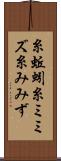 糸蚯蚓糸ミミズ糸みみず